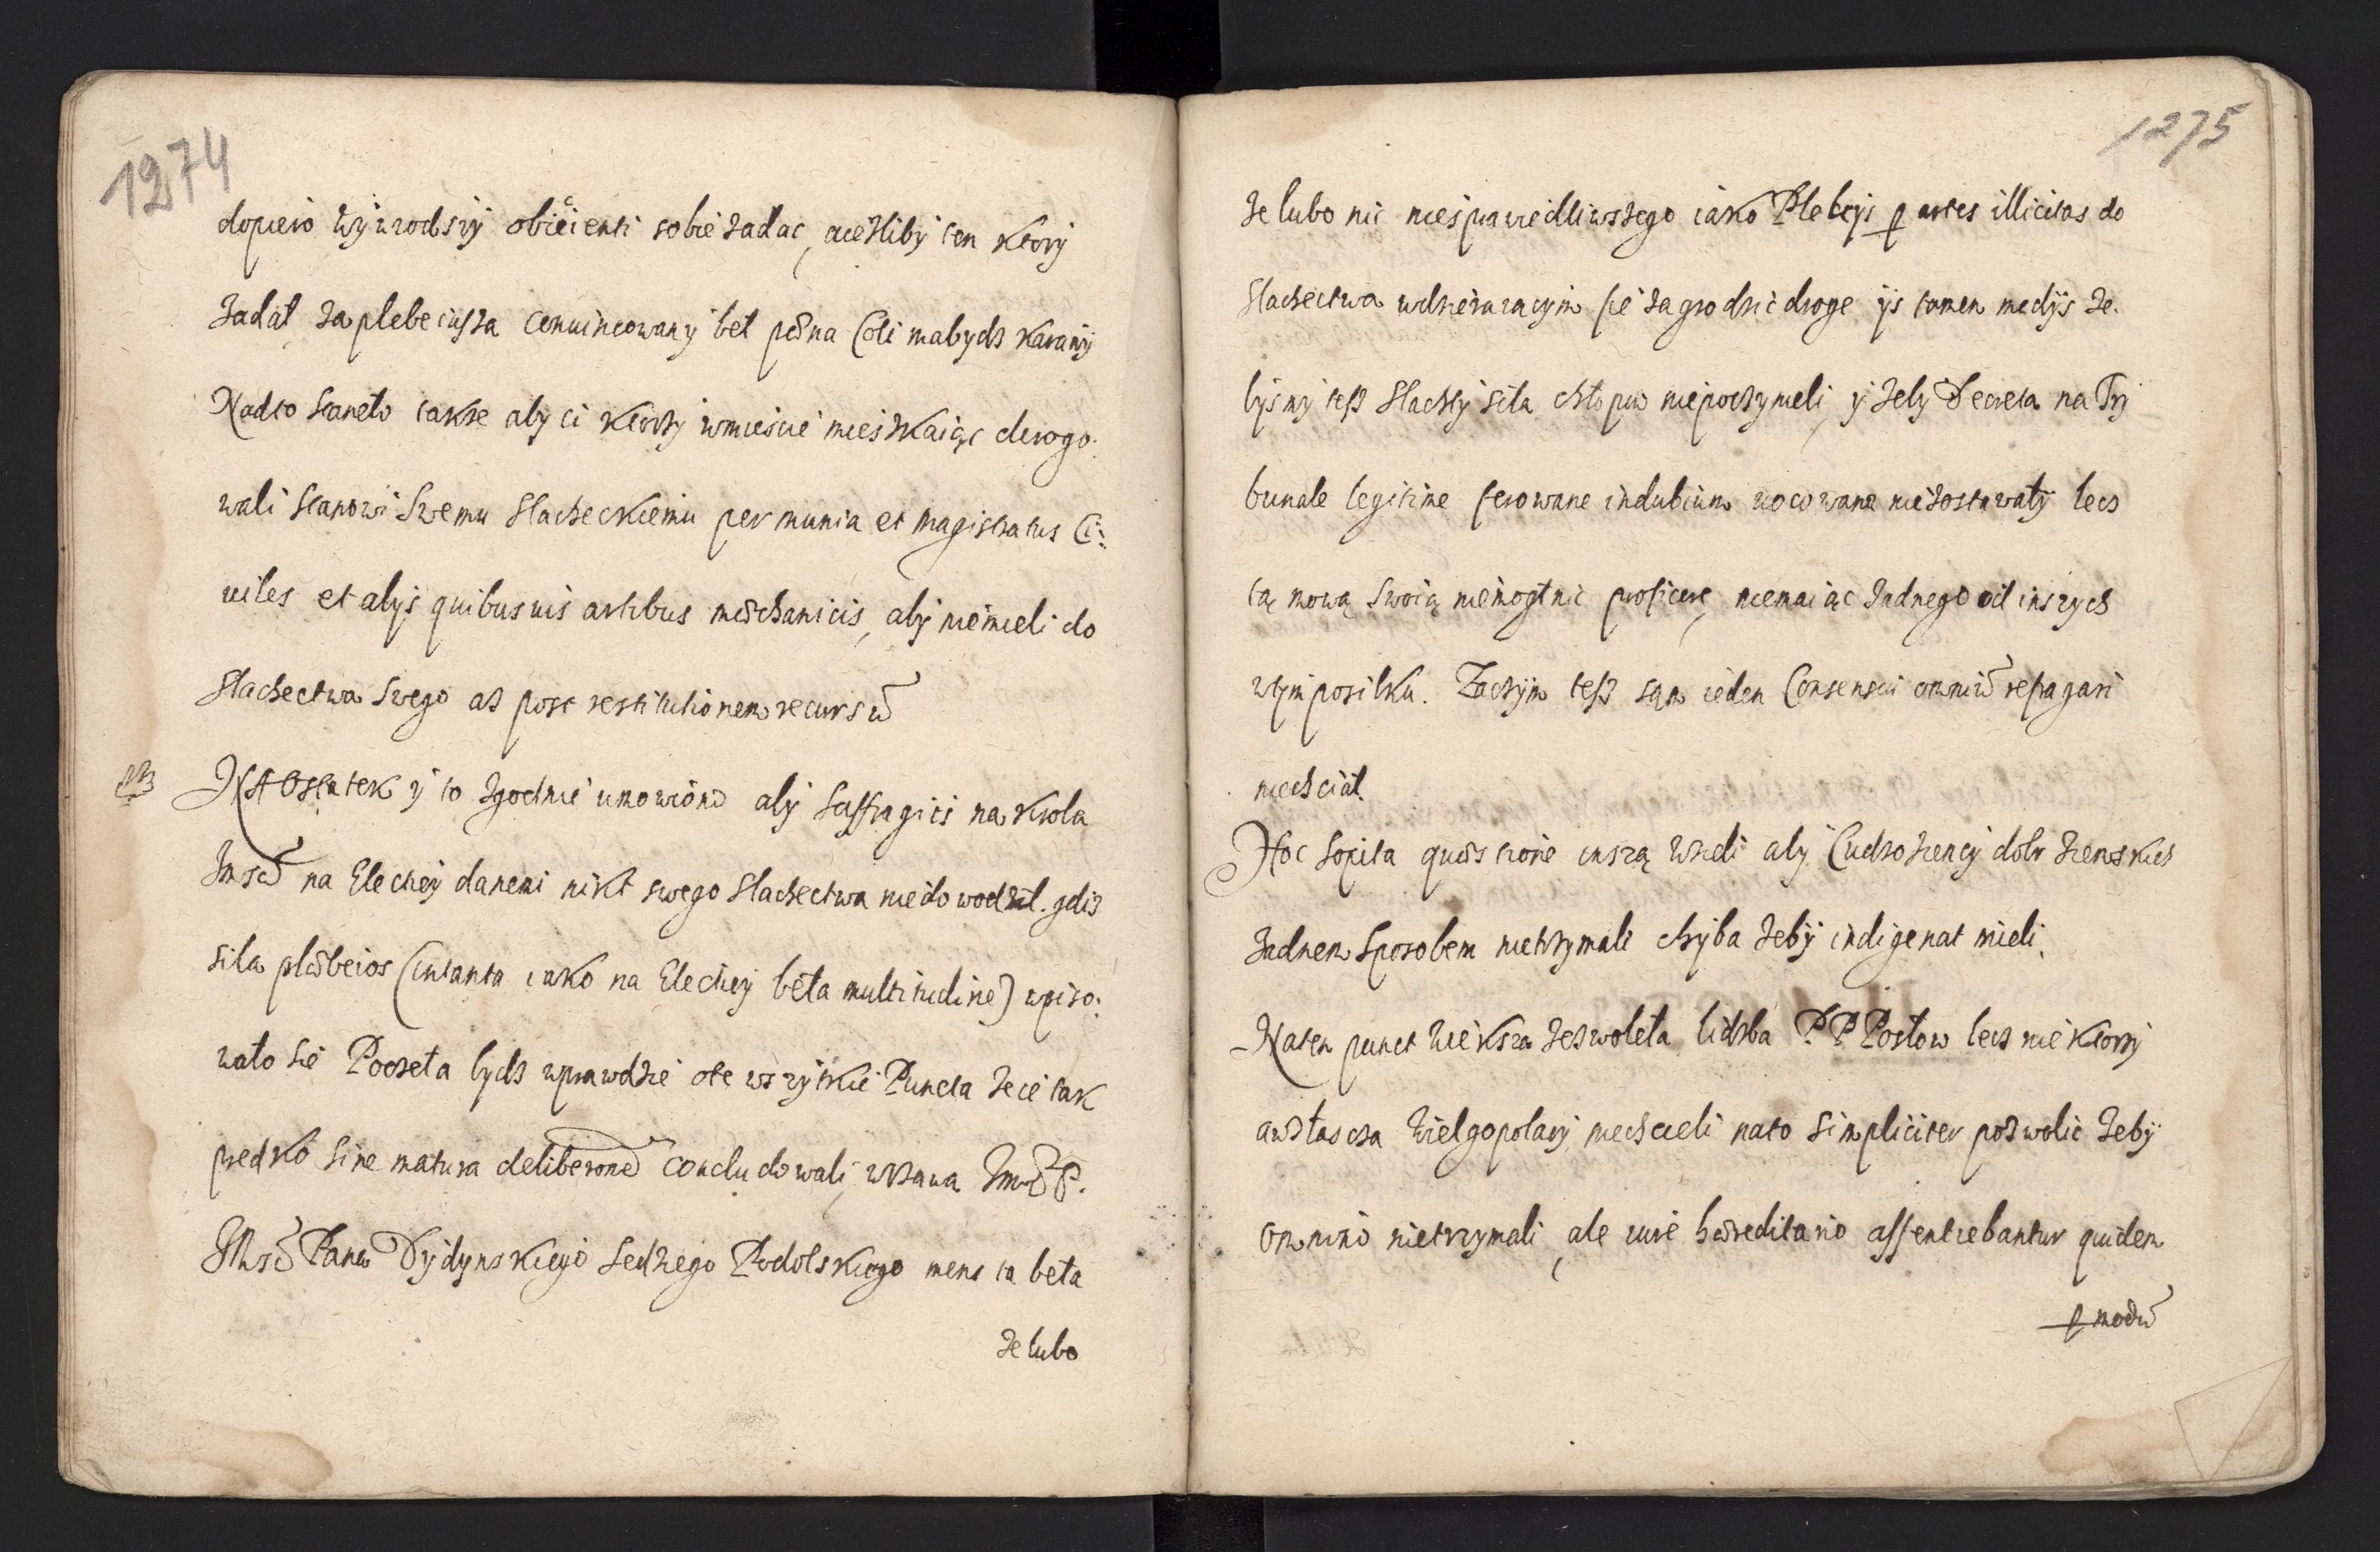 1274
dopiero wywrodszy obiicienti sobie zadac, a iezliby ten ktory
zadał za plebeiusza conuincowany beł pœna Coli mabydz karany
Nadto staneło takze aby ci ktorzy wmiescie mieszkaiąc derogo:
wali stanowi swemu slacheckiemu per munia et magistratus Ci:
uiles et alijs quibusuis artibus mœchanicis, aby niemieli do
slachectwa swego asz post restitutionem recursu
NB NA Ostatek y to zgodnie umowiono aby suffragiis na Krola
Jmsci na Elechey danemi nikt swego slachectwa niedowodził. gdisz
siła plœbeios (intanta iako na Elechey beła multitudine) wpiso:
wało sie Poczeła bydz wprawdzie ote wszytkie Puncta zecie tak
predko sine matura deliberone concludowali, wszawa Jmsci P.
JMsci Pana Dydynskiego Sedziego Podolskiego mens ta beła
ze lubo
1275
ze lubo nic niesprawiedliwszego iako Plebeijs p artes illicitas do
slachectwa wdzieraiacym sie zagrodzic droge ijs tamen medijs ze:
bysmy tesz slachty siła chłopow niepoczynieli, y zeby Decreta na Try
bunale legitime ferowane indubium uocowane niezostawały lecz
tą mową swoią niemogł nic proficere, niemaiąc zadnego od inszych
wtym posiłku. Zaczym tesz sam ieden Consensui omniu repagari
niechciał.
Hoc sopita quœstione inszą wzieli aby Cudzoziemcy dobr ziemskich
zadnem sposobem nietrzymali chyba zeby indigenat mieli.
Naten punct wieksza zezwoleła lidzba PP Posłow lecz nie ktorzy
awzłascza Wielgopolacy niechcieli nato simpliciter pozwolic zeby
omnino nietrzymali, ale iure hœreditario assentiebantur quidem
p modu